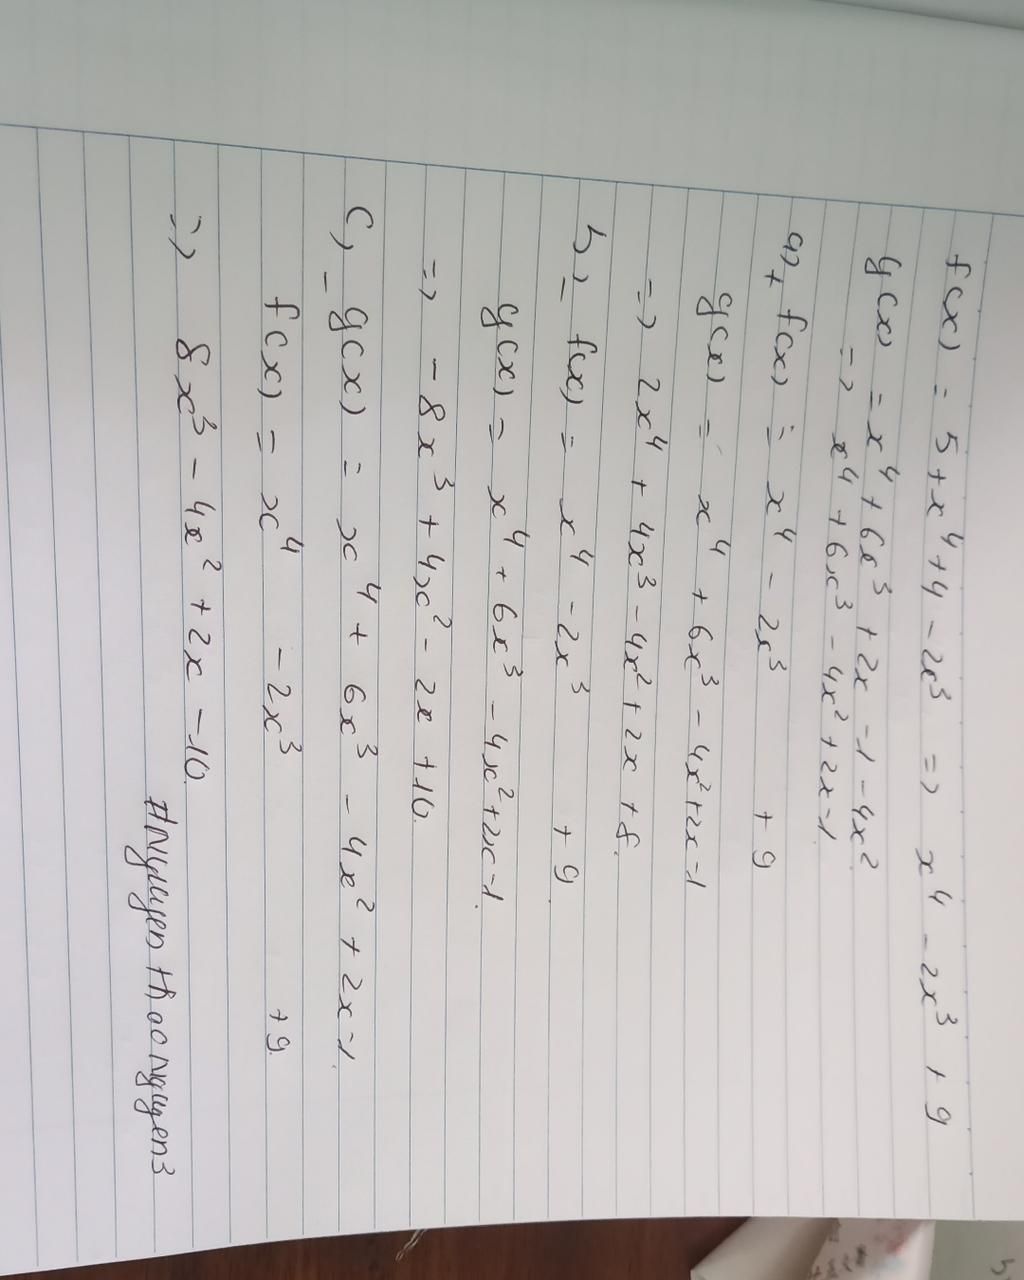 f(x) = 5 + x⁴ + 4 - 2x³ => x⁴ - 2x³ + 9
g(x) = x⁴ + 6x³ + 2x - 1 - 4x²
=> x⁴ + 6x³ - 4x² + 2x - 1
a, + f(x) = x⁴ - 2x³ + 9
g(x) = x⁴ + 6x³ - 4x² + 2x - 1
=> 2x⁴ + 4x³ - 4x² + 2x + 8.
b, - f(x) = x⁴ - 2x³ + 9
g(x) = x⁴ + 6x³ - 4x² + 2x - 1.
=> - 8x³ + 4x² - 2x + 10.
c, - g(x) = x⁴ + 6x³ - 4x² + 2x - 1.
f(x) = x⁴ - 2x³ + 9.
=> 8x³ - 4x² + 2x - 10.
#Nguyen thaonguyen3